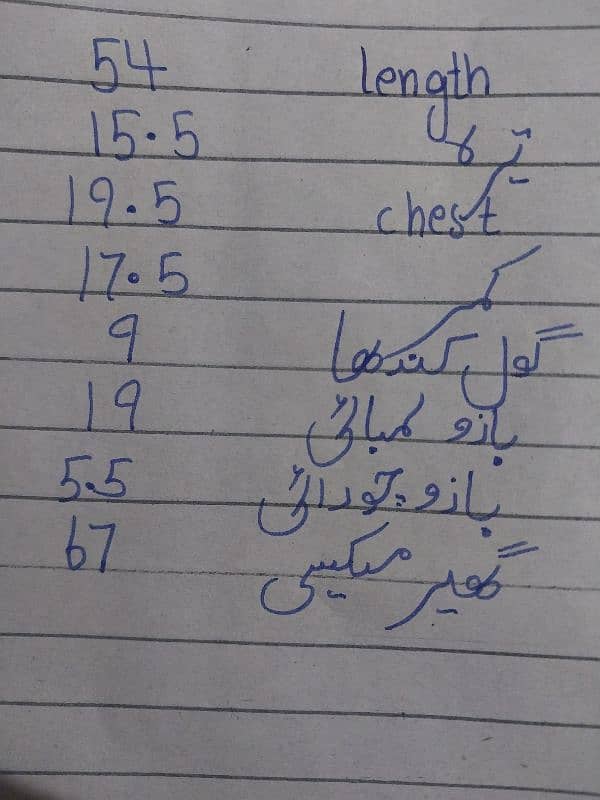 54 length
15.5 تیرا
19.5 chest
17.5 کمر
9 گول کندھا
19 بازو لمبائی
5.5 بازو چوڑائی
67 گھیر میکسی